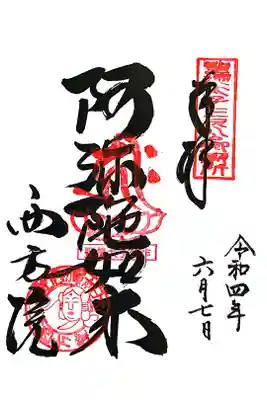 奉拝
令和四年
六月七日
阿弥陀如来
西方院